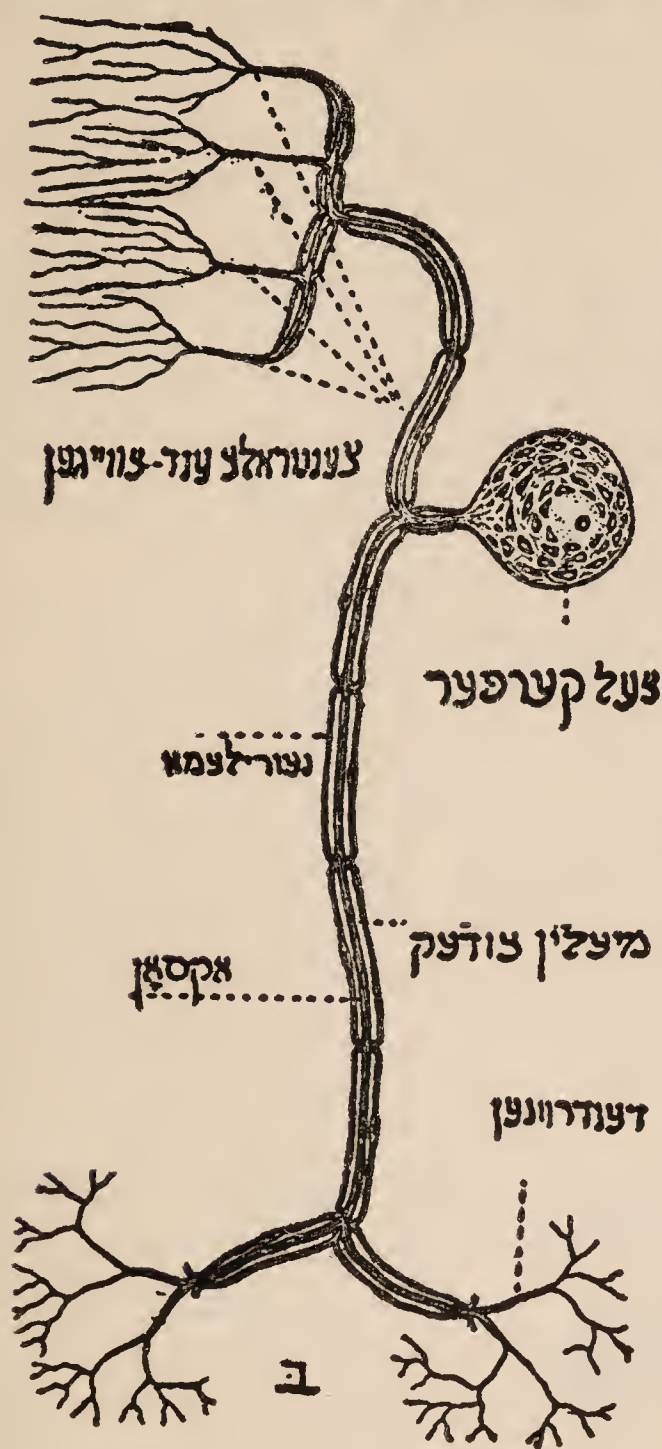 צענטראלע ענד-צווייגען
צעל קערפער
נעורילעמא
מיעלין צודעק
אקסאָן
דענדרונען
ב